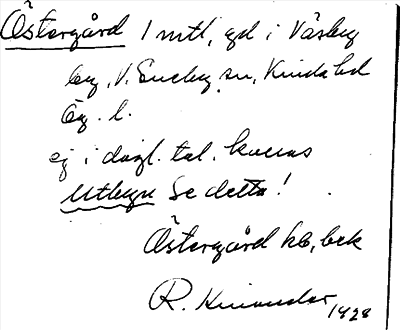 Östergård 1 mtl, gd i Väsby
by, V. Eneby sn, Kinda hd
Ög. l.
ej i dagl. tal. kallas
Utbyn Se detta!
Östergård kb, bek
R. Kinander, 1928